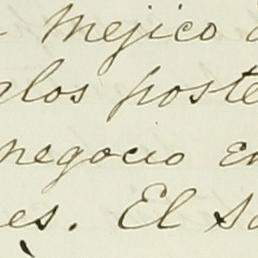 Mejico
los poste
negocio en
es. El s